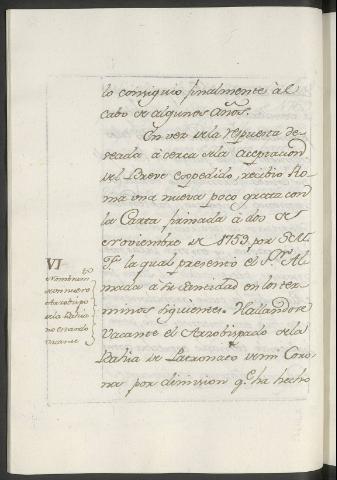 lo consiguio finalmente al
cabo de algunos años.
En vez de la respuesta de-
seada à cerca de la aceptacion
del Breve expedido, recibio Ro-
ma una nueva poco grata con
la Carta firmada à dos de
Noviembre de 1759, por S. M.
F. la qual presentò el Sr. Al-
mada à Su Santidad en los ter-
minos siguientes. Hallandose
Vacante el Arzobispado de la
Bahia de Patronato de mi Coro-
na por dimision q.e ha hecho
VI
Nombram.to
de un nuevo
Arzobispo
de la Bahia
no estando
vacante